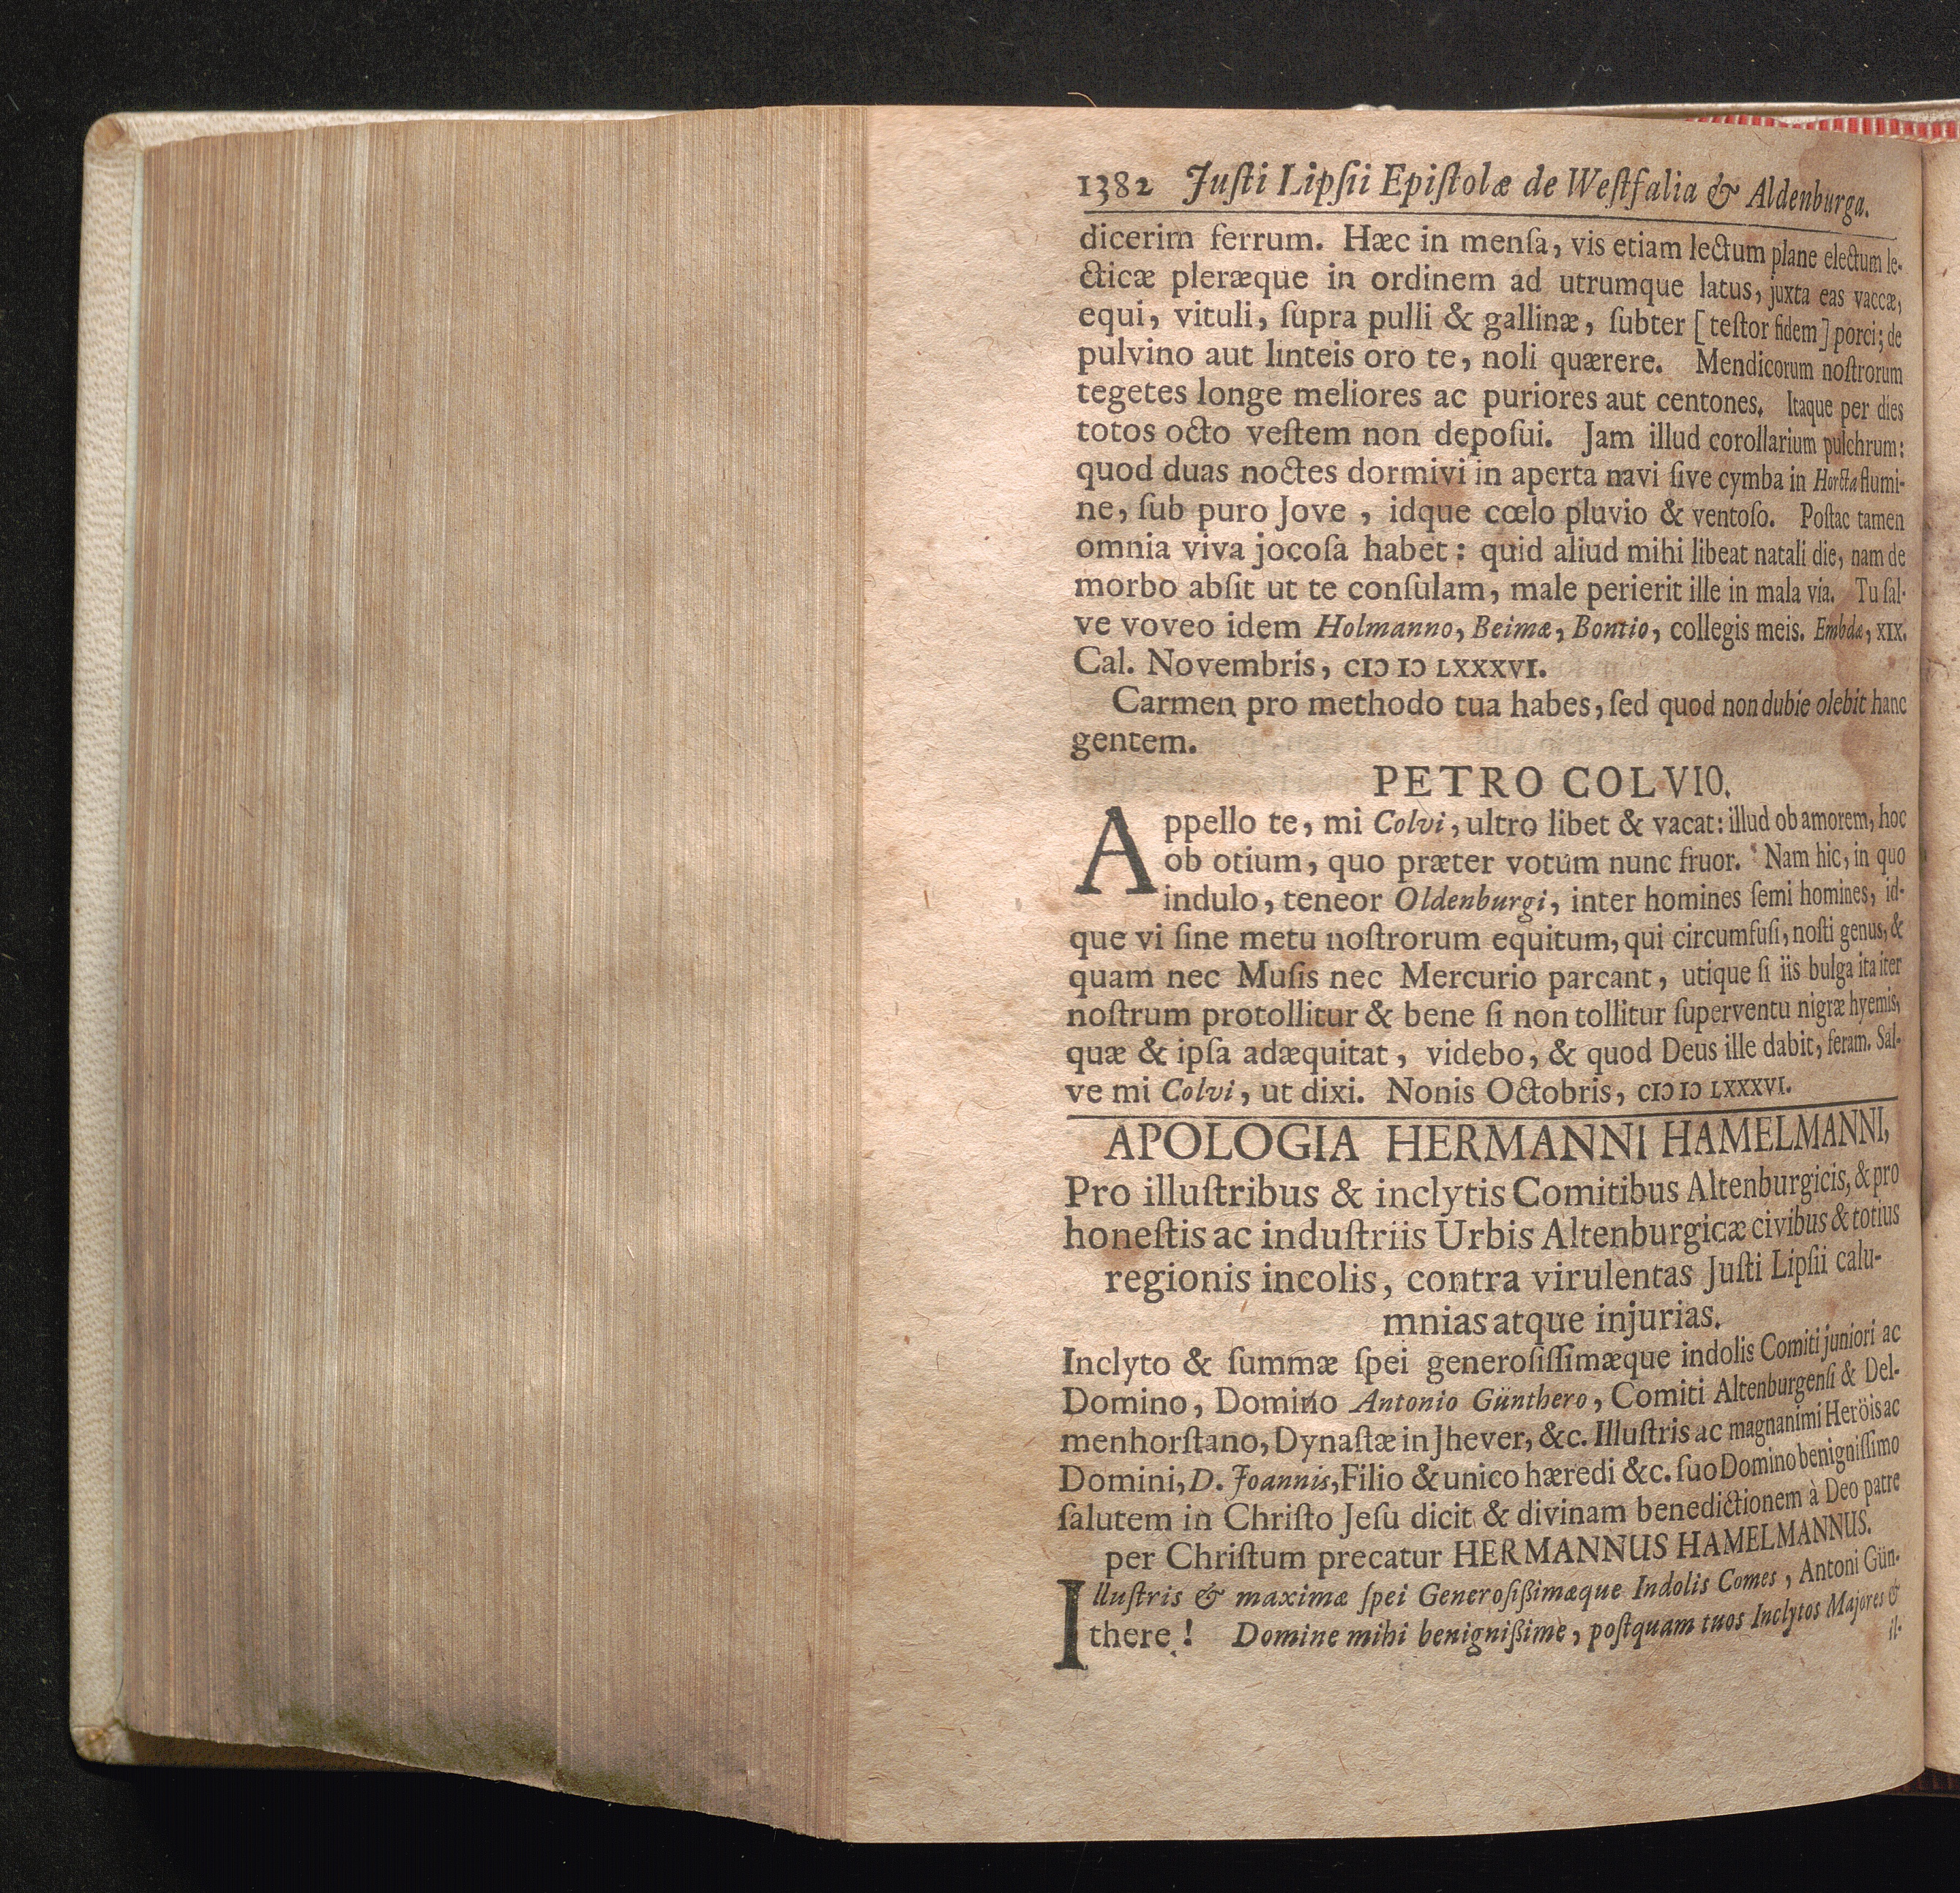 1382 Juſti Lipſii Epiſtolæ de Weſtfalia & Aldenburga.
dicerim ferrum. Hæc in menſa, vis etiam lectum plane electum le-
cticæ pleræque in ordinem ad utrumque latus, juxta eas vaccæ,
equi, vituli, ſupra pulli & gallinæ, ſubter [teſtor fidem] porci; de
pulvino aut linteis oro te, noli quærere. Mendicorum noſtrorum
tegetes longe meliores ac puriores aut centones. Itaque per dies
totos octo veſtem non depoſui. Jam illud corollarium pulchrum:
quod duas noctes dormivi in aperta navi ſive cymba in Horcta flumi-
ne, ſub puro Jove, idque cœlo pluvio & ventoſo. Poſtac tamen
omnia viva jocoſa habet: quid aliud mihi libeat natali die, nam de
morbo abſit ut te conſulam, male perierit ille in mala via. Tu ſal-
ve voveo idem Holmanno, Beimæ, Bontio, collegis meis. Embdæ, XIX.
Cal. Novembris, CIƆ IƆ LXXXVI.
Carmen pro methodo tua habes, ſed quod non dubie olebit hanc
gentem.
PETRO COLVIO.
Appello te, mi Colvi, ultro libet & vacat: illud ob amorem, hoc
ob otium, quo præter votum nunc fruor. Nam hic, in quo
indulo, teneor Oldenburgi, inter homines ſemi homines, id-
que vi ſine metu noſtrorum equitum, qui circumfuſi, noſti genus, &
quam nec Muſis nec Mercurio parcant, utique ſi iis bulga ita iter
noſtrum protollitur & bene ſi non tollitur ſuperventu nigræ hyemis,
quæ & ipſa adæquitat, videbo, & quod Deus ille dabit, feram. Sal-
ve mi Colvi, ut dixi. Nonis Octobris, CIƆ IƆ LXXXVI.
APOLOGIA HERMANNI HAMELMANNI,
Pro illuſtribus & inclytis Comitibus Altenburgicis, & pro
honeſtis ac induſtriis Urbis Altenburgicæ civibus & totius
regionis incolis, contra virulentas Juſti Lipſii calu-
mnias atque injurias.
Inclyto & ſummæ ſpei generoſiſſimæque indolis Comiti juniori ac
Domino, Domino Antonio Günthero, Comiti Altenburgenſi & Del-
menhorſtano, Dynaſtæ in Jhever, &c. Illuſtris ac magnanimi Heröis ac
Domini, D. Joannis, Filio & unico hæredi &c. ſuo Domino benigniſſimo
ſalutem in Chriſto Jeſu dicit & divinam benedictionem à Deo patre
per Chriſtum precatur HERMANNUS HAMELMANNUS.
Illuſtris & maximæ ſpei Generoſißimæque Indolis Comes, Antoni Gün-
there! Domine mihi benignißime, poſtquam tuos Inclytos Majores &
il-